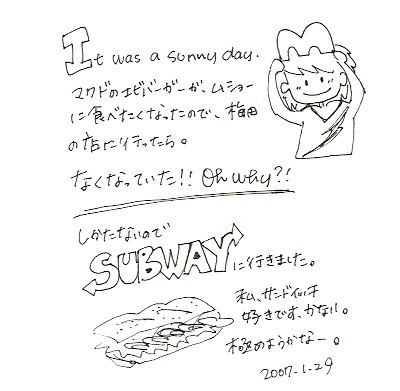 It was a sunny day.
マクドのエビバーガーが、ムショー
に食べたくなったので、梅田
の店に行ったら。
なくなっていた!! Oh why?!
しかたないので
SUBWAYに行きました。
私、サンドイッチ
好きです、かない。
極めようかなー。
2007.1.29